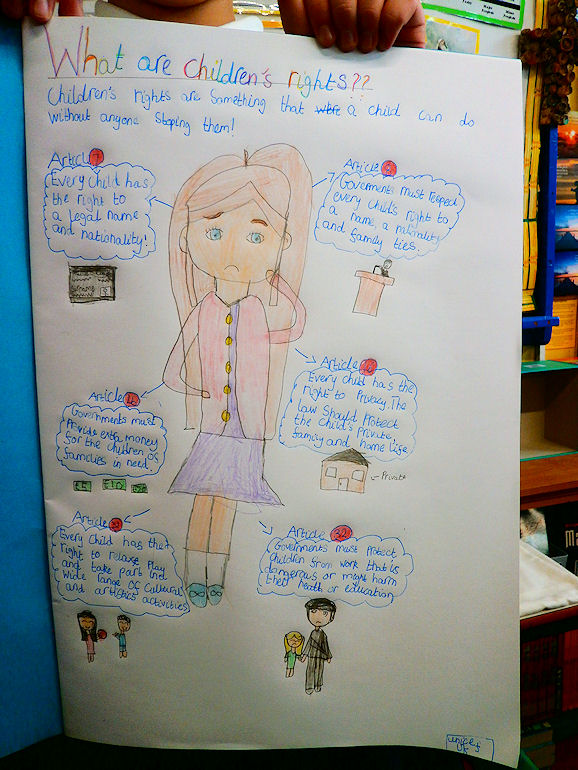 What are children's rights??
Children's rights are something that were a child can do
without anyone stoping them!
Article 7
Every child has
the right to
a legal name
and nationality!
Article 8
Goverments must respect
every child's right to
a name, a nationality
and family ties.
Article
Every child has the
right to Privacy. The
law should Protect
the child's Private,
family and home life
← Private
Article
Governments must
Provide extra money
for the children of
families in need.
£5 £10
Article
Every child has the
right to relaxe, Play
and take part in a
wide range of cultural
and artistics activities
Article 32
Governments must Protect
children from work that is
dangerous or might harm
their health or education
unicef
UK